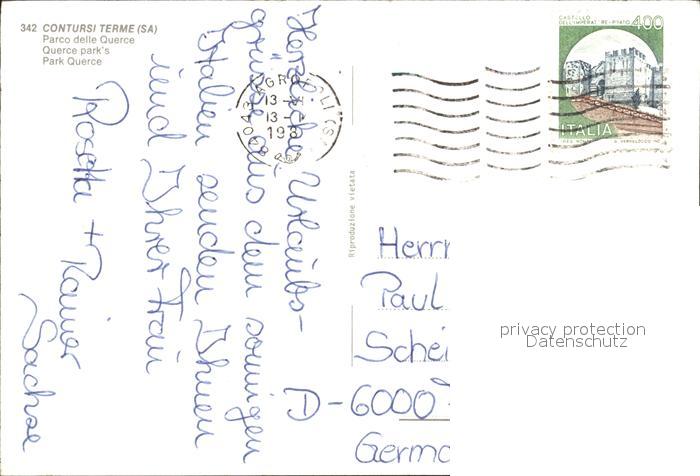 342 CONTURSI TERME (SA)
Parco delle Querce
Querce park's
Park Querce
Herzliche Urlaubs-
grüsse aus dem sonnigen
Italien senden Ihnen
und Ihrer Frau
Rosetta + Rainer
Sachse
AGROPOLI (SA)
13-
13-
198
Riproduzione vietata
CASTELLO
DELL'IMPERAT. RE-PRATO
400
ITALIA
Herrn
Paul
Schei
D-6000
Germa
privacy protection
Datenschutz